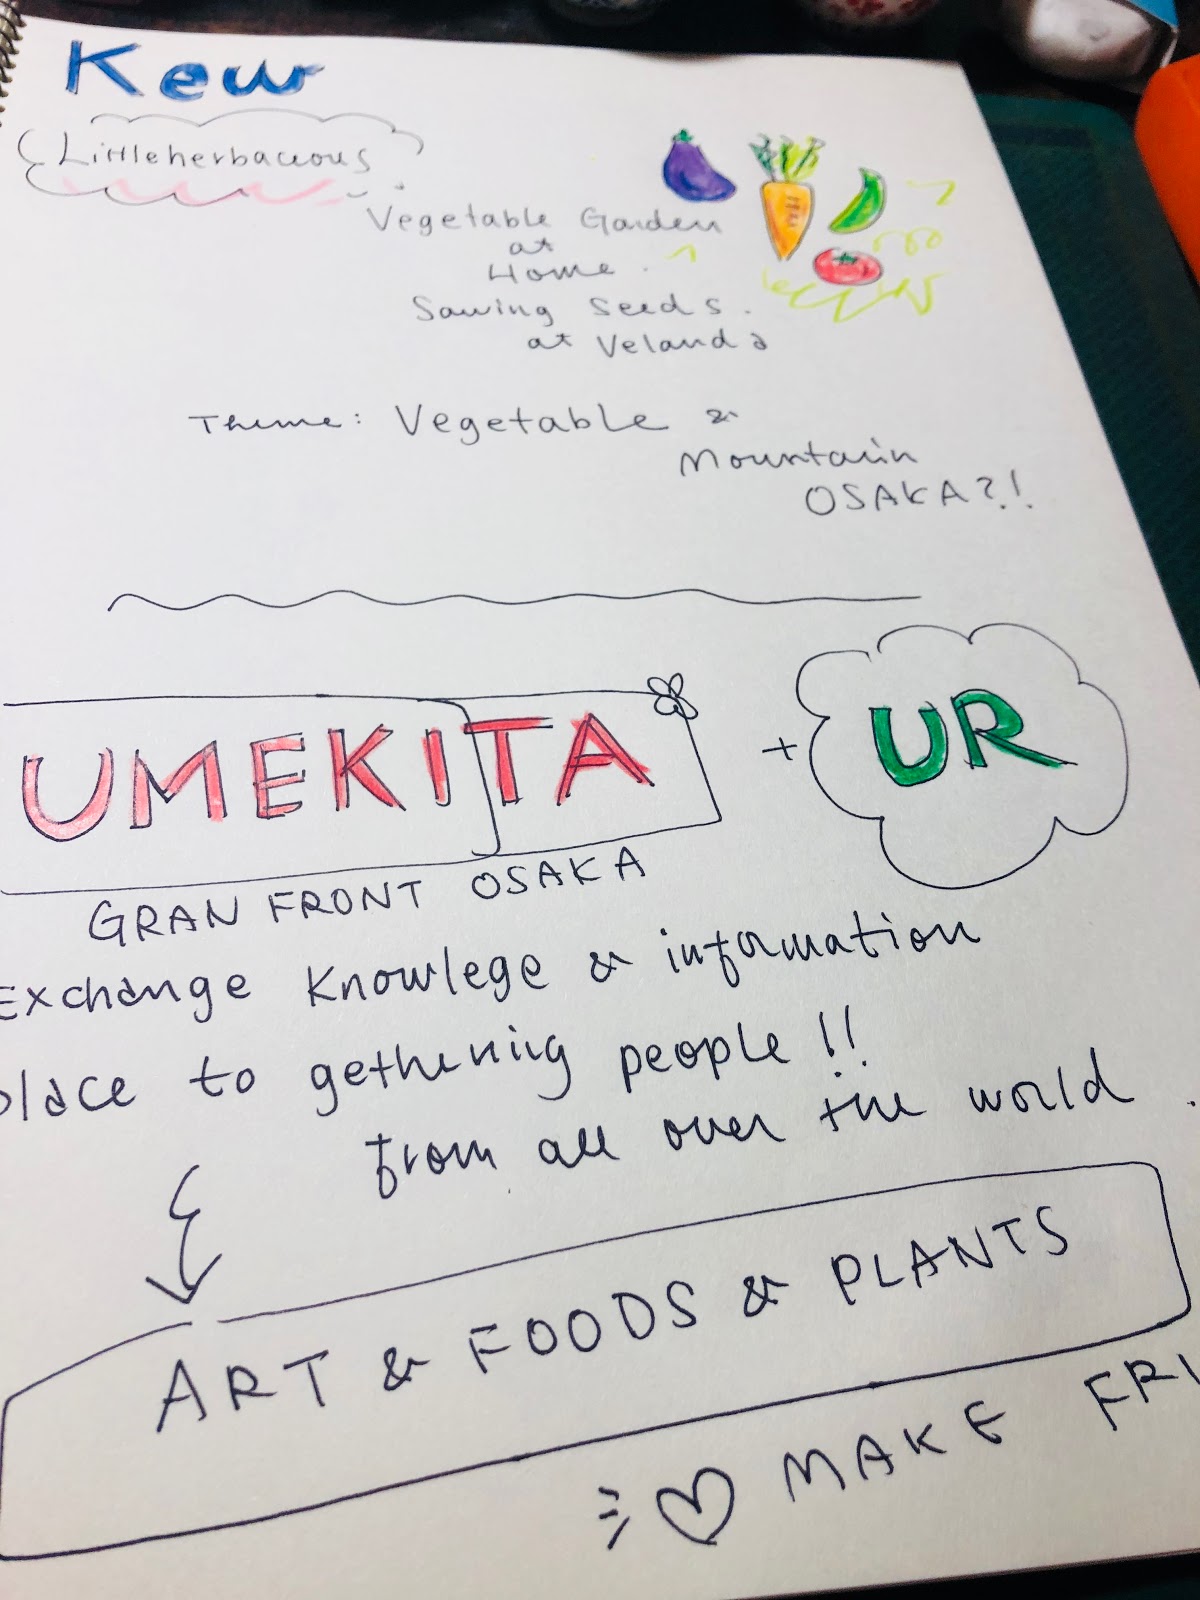 Kew
Littleherbaceous
Vegetable Garden
at
Home.
Sawing Seeds.
at Velanda
Theme: Vegetable &
Mountain
OSAKA?!
UMEKITA + UR
GRAN FRONT OSAKA
Exchange Knowlege & information
place to gethering people!!
from all over the world.
ART & FOODS & PLANTS
MAKE FRI